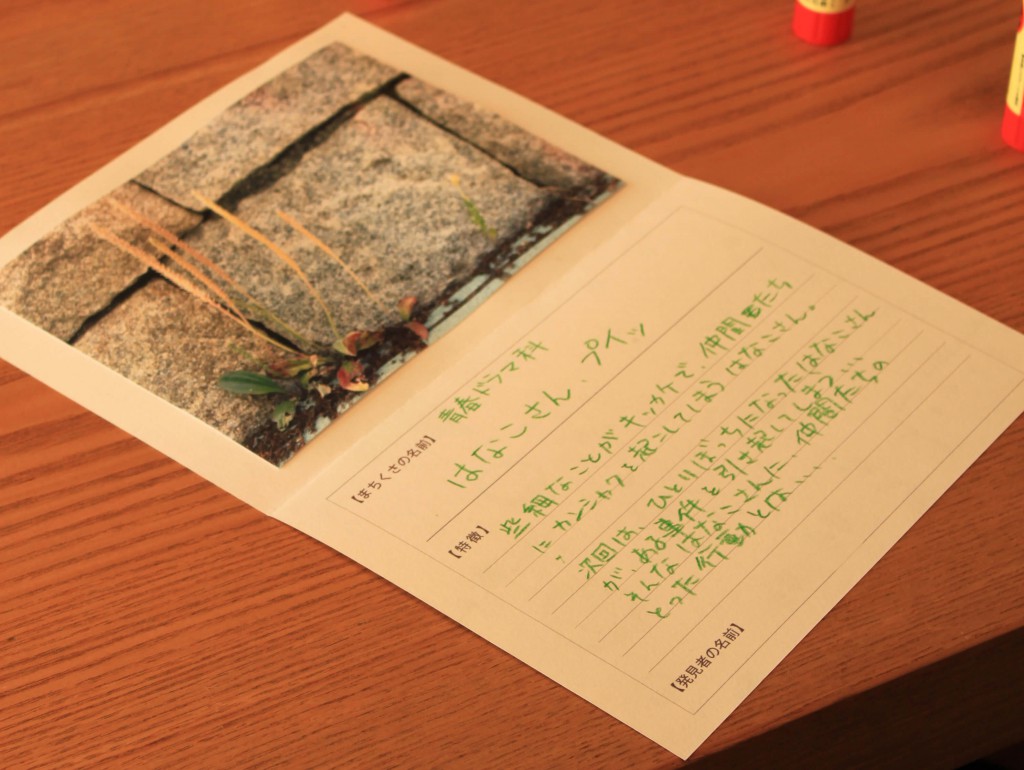 【まちくさの名前】 青春ドラマ科
はなこさん、プイッ
【特徴】 些細なことがキッカケで、仲間たち
にカンシャクを起こしてしまうはなこさん。
次回は、ひとりぼっちになったはなこさん
が、ある事件を引き起こしてしまう…
そんなはなこさんに、仲間たちの
とった行動とは、…
【発見者の名前】